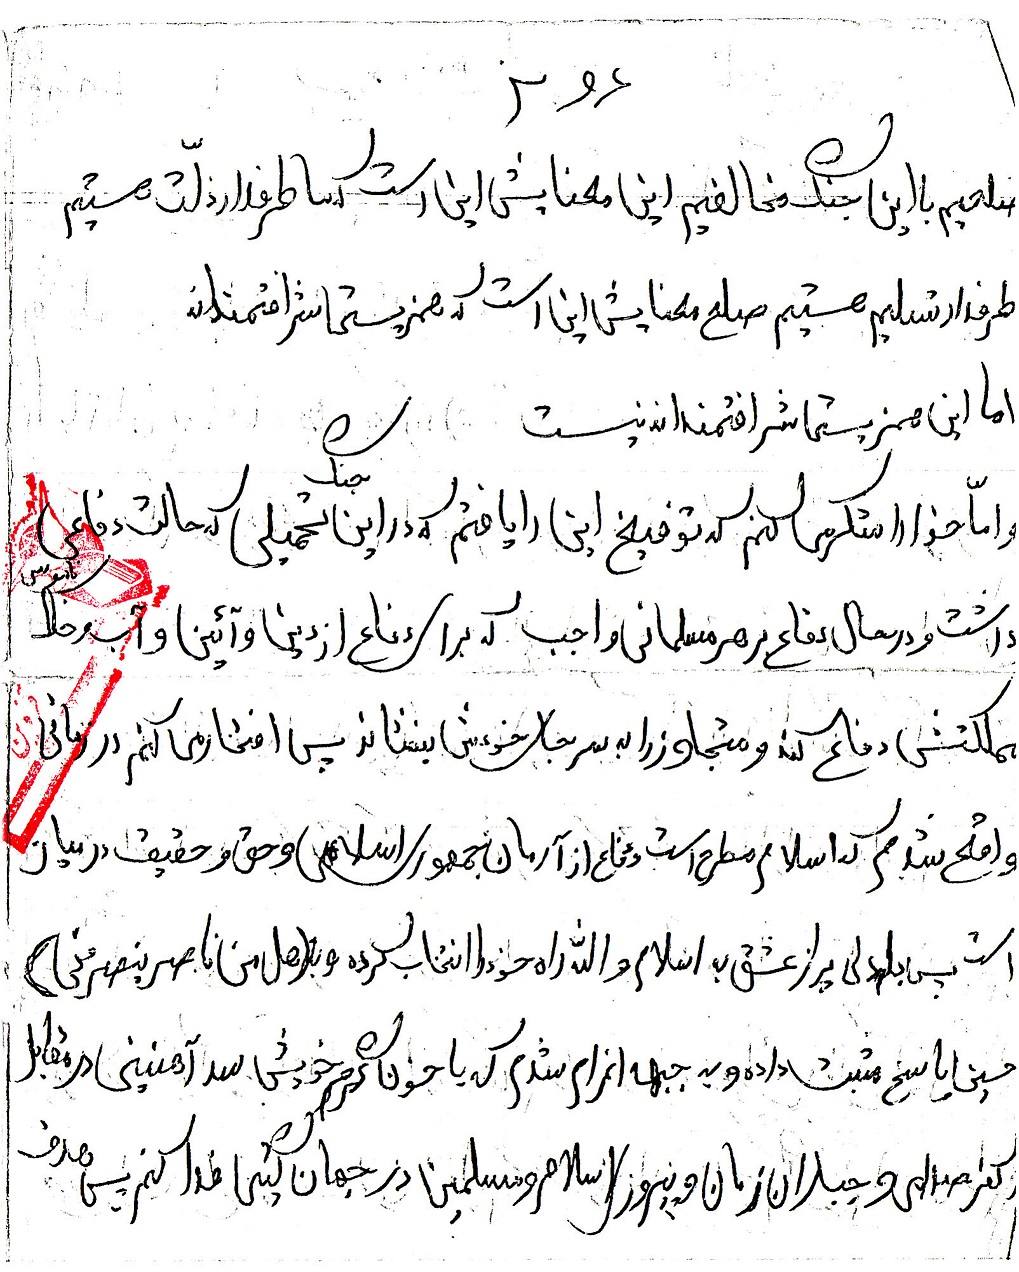 صلحیم با این جنگ مخالفیم این معنایش این است که ما طرفدار ذلّت هستیم
طرفدار تسلیم هستیم صلح معنایش این است که همزیستی شرافتمندانه
اما این همزیستی شرافتمندانه نیست
و امّا خدا را شکر می کنم که توفیق این را یافتم که در این جنگ تحمیلی که حالت دفاعی
داشت و در حال دفاع بر هر مسلمانی واجب که برای دفاع از دین و آئین و آب و خاک
مملکتش دفاع کند و متجاوز را به سر جای خودش بنشاند پس افتخار می کنم در زمانی
واقع شدم که اسلام مطرح است دفاع از آرمان جمهوری اسلامی و حق و حقیقت در میان
است پس با دلی پر از عشق به اسلام و الله راه خود را انتخاب کرده و به (هل من ناصر ینصرنی)
حسین پاسخ مثبت داده و به جبهه اعزام شدم که با خون گرم خویش سد آهنینی در مقابل
کفر صدامی و جباران زمان و پیروزی اسلام و مسلمین در جهان گیتی فدا کنم پس هدف